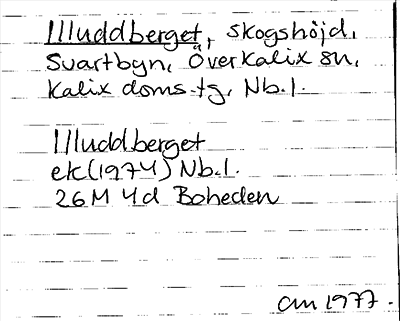 Illuddberget, skogshöjd,
Svartbyn, Överkalix sn,
Kalix doms.tg, Nb.l.
Illuddberget
ek(1974) Nb.l.
26M 4d Boheden
am 1977.